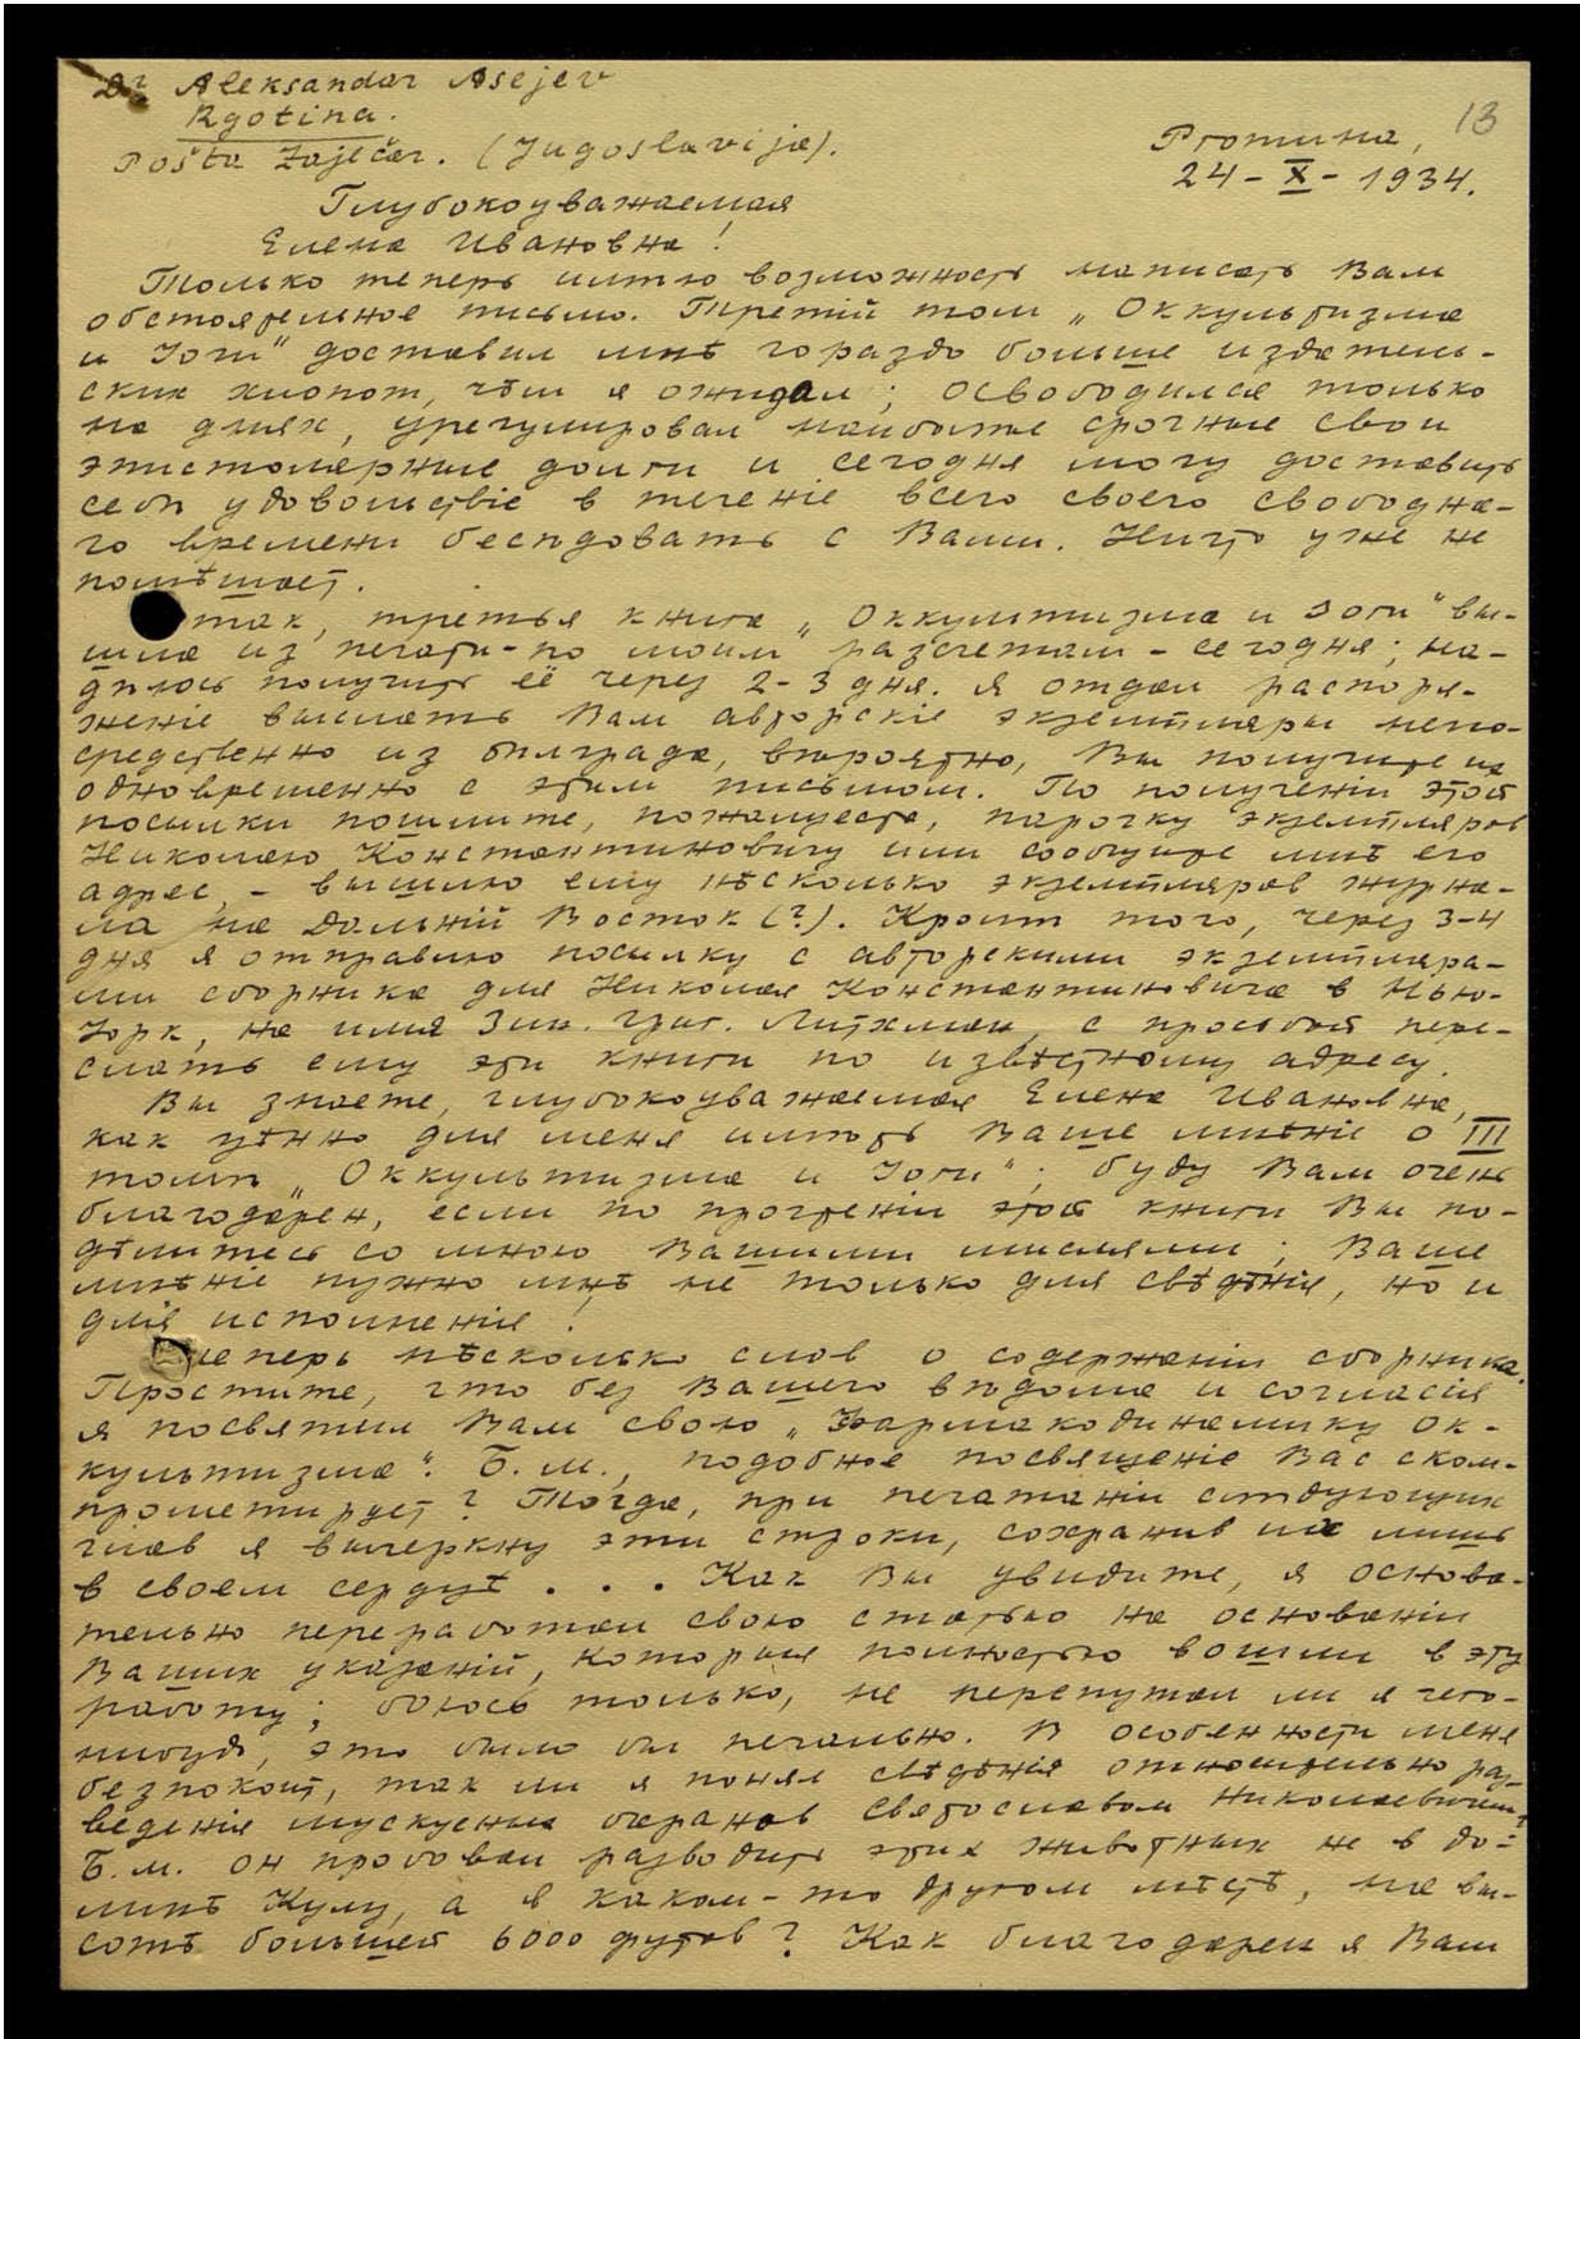 Dr Aleksandar Asejev
Rgotina.
Pošta Zaječar. (Jugoslavija).
13
Рготина,
24-X-1934.
Глубокоуважаемая
Елена Ивановна!
Только теперь имѣю возможность написать Вам
обстоятельное письмо. Третій том „Оккультизма
и Іоги" доставил мнѣ гораздо больше издатель-
ских хлопот, чѣм я ожидал; освободился только
на днях, урегулировал наиболѣе срочные свои
эпистолярные долги и сегодня могу доставить
себѣ удовольствіе в теченіе всего своего свободна-
го времени бесѣдовать с Вами. Ничто уже не
помѣшает.
Итак, третья книга „Оккультизма и Іоги" вы-
шла из печати - по моим разсчетам - сегодня; на-
дѣюсь получить её через 2-3 дня. Я отдал распоря-
женіе выслать Вам авторскіе экземпляры непо-
средственно из Бѣлграда, вѣроятно, Вы получите их
одновременно с этим письмом. По полученіи этой
посылки пошлите, пожалуйста, парочку экземпляров
Николаю Константиновичу или сообщите мнѣ его
адрес, - вышлю ему нѣсколько экземпляров журна-
ла на Дальній Восток (?). Кромѣ того, через 3-4
дня я отправлю посылку с авторскими экземпляра-
ми сборника для Николая Константиновича в Нью-
Іорк, на имя Зин. Григ. Лихтман, с просьбой пере-
слать ему эти книги по извѣстному адресу.
Вы знаете, глубокоуважаемая Елена Ивановна,
как цѣнно для меня имѣть Ваше мнѣніе о III
томѣ „Оккультизма и Іоги"; буду Вам очень
благодарен, если по прочтеніи этой книги Вы по-
дѣлитесь со мною Вашими мыслями; Ваше
мнѣніе нужно мнѣ не только для свѣдѣнія, но и
для исполненія!
Теперь нѣсколько слов о содержаніи сборника.
Простите, что без Вашего вѣдома и согласія
я посвятил Вам свою „Фармакодинамику ок-
культизма". Б.м., подобное посвященіе Вас ском-
прометирует? Тогда, при печатаніи слѣдующих
глав я вычеркну эти строки, сохранив их лишь
в своем сердцѣ... Как Вы увидите, я основа-
тельно переработал свою статью на основаніи
Ваших указаній, которыя полностью вошли в эту
работу; боюсь только, не перепутал ли я чего-
нибудь, это было бы печально. В особенности меня
безпокоит, так ли я понял свѣдѣнія относительно раз-
веденія мускусных баранов Святославом Николаевичем.
Б.м. он пробовал разводить этих животных не в до-
линѣ Кулу, а в каком-то другом мѣстѣ, на вы-
сотѣ большей 6000 футов? Как благодарен я Вам